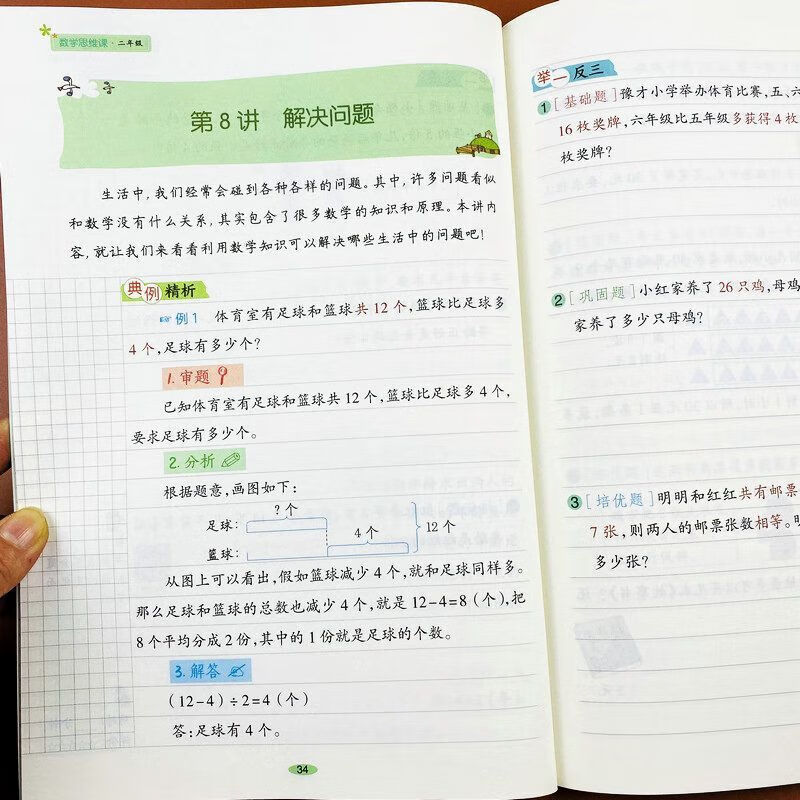 数学思维课·二年级
第8讲 解决问题
生活中,我们经常会碰到各种各样的问题。其中,许多问题看似
和数学没有什么关系,其实包含了很多数学的知识和原理。本讲内
容,就让我们来看看利用数学知识可以解决哪些生活中的问题吧!
典例精析
例1 体育室有足球和篮球共12个,篮球比足球多
4个,足球有多少个?
1.审题
已知体育室有足球和篮球共12个,篮球比足球多4个,
要求足球有多少个。
2.分析
根据题意,画图如下:
?个
足球:
4个
12个
篮球:
从图上可以看出,假如篮球减少4个,就和足球同样多。
那么足球和篮球的总数也减少4个,就是12-4=8(个),把
8个平均分成2份,其中的1份就是足球的个数。
3.解答
(12-4)÷2=4(个)
答:足球有4个。
34
举一反三
1[基础题]豫才小学举办体育比赛,五、六
16枚奖牌,六年级比五年级多获得4枚
枚奖牌?
2[巩固题]小红家养了26只鸡,母鸡
家养了多少只母鸡?
3[培优题]明明和红红共有邮票
7张,则两人的邮票张数相等。明
多少张?